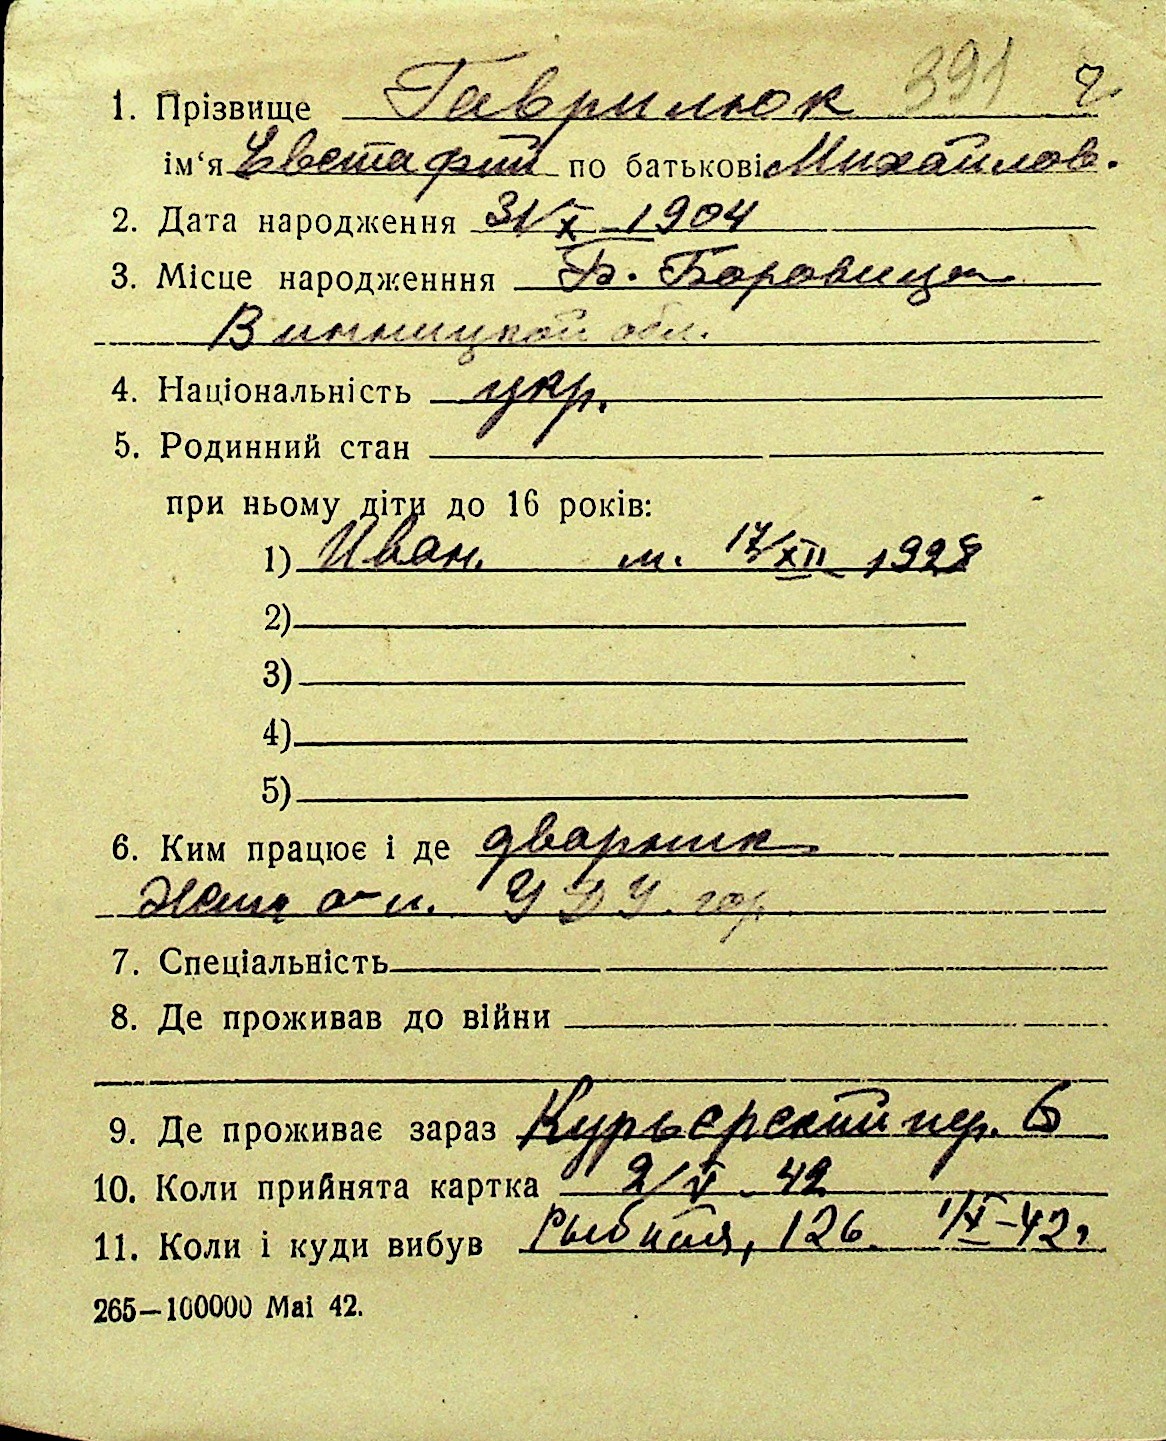 391 2
1. Прізвище Гаврилюк
ім‘я Евстафий по батькові Михайлов.
2. Дата народження 31/X 1904
3. Місце народженння Б. Боровица
Винницкой обл.
4. Національність укр.
5. Родинний стан
при ньому діти до 16 років:
1) Иван. м. 17/XII 1928
2)
3)
4)
5)
6. Ким працює і де дворник
УДУ. гор
7. Спеціальність
8. Де проживав до війни
9. Де проживає зараз Курьерский пер. 6
10. Коли прийнята картка 2/V 42
11. Коли і куди вибув 126. 1/X-42г
265—100000 Маі 42.